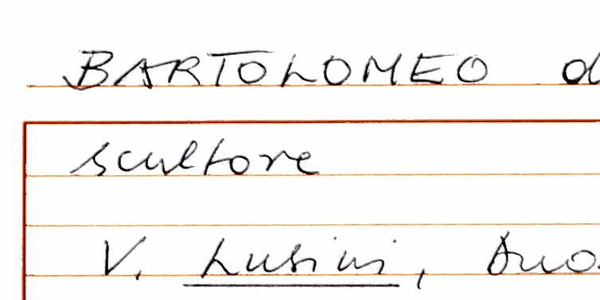 BARTOLOMEO d
scultore
V. Lusini, Duo